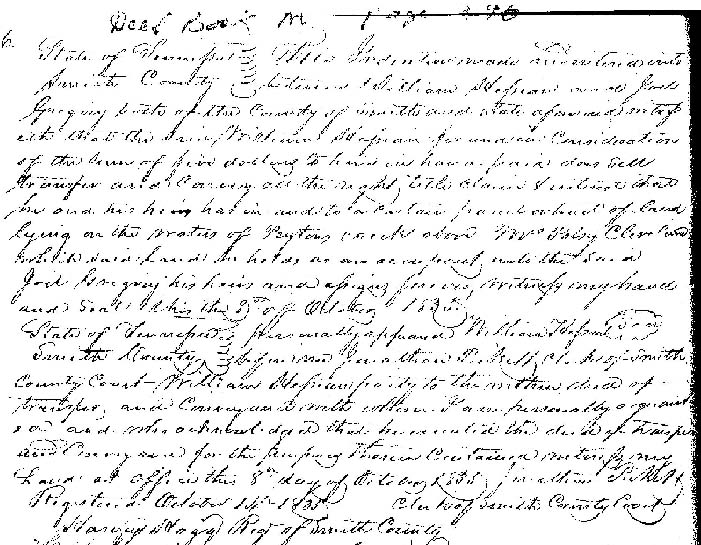 Deed Book M Page
State of Tennessee This Indenture made & entered into
Smith County between William Hofman and Joel
Gregory both of the County of Smith and State aforesaid witness
eth that the Said William Hofman for and in Consideration
of the Sum of five dollars to him in hand paid does Sell
transfer and Convey all the right title claim & interest that
he and his heirs has in and to a certain parcel of land
lying on the waters of Peytons creek above Mrs Patsy Cleveland
which said Land he holds as an occupant unto the Said
Joel Gregory his heirs and assigns forever witness my hand
and Seal this the 3rd of October William Hofman Seal
State of Tennessee personally appeared
Smith County before me Jonathan Clerk of Smith
County Court William Hofman party to the within deed of
transfer and Conveyance with whom I am personally acquaint
ed and who acknowledged that he executed the deed of transfer
and Conveyance for the purposes therein Contained witness my
hand at office this 8th day of October Jonathan
Registered October 14th Clerk of Smith County Court
Hogg Regr of Smith County